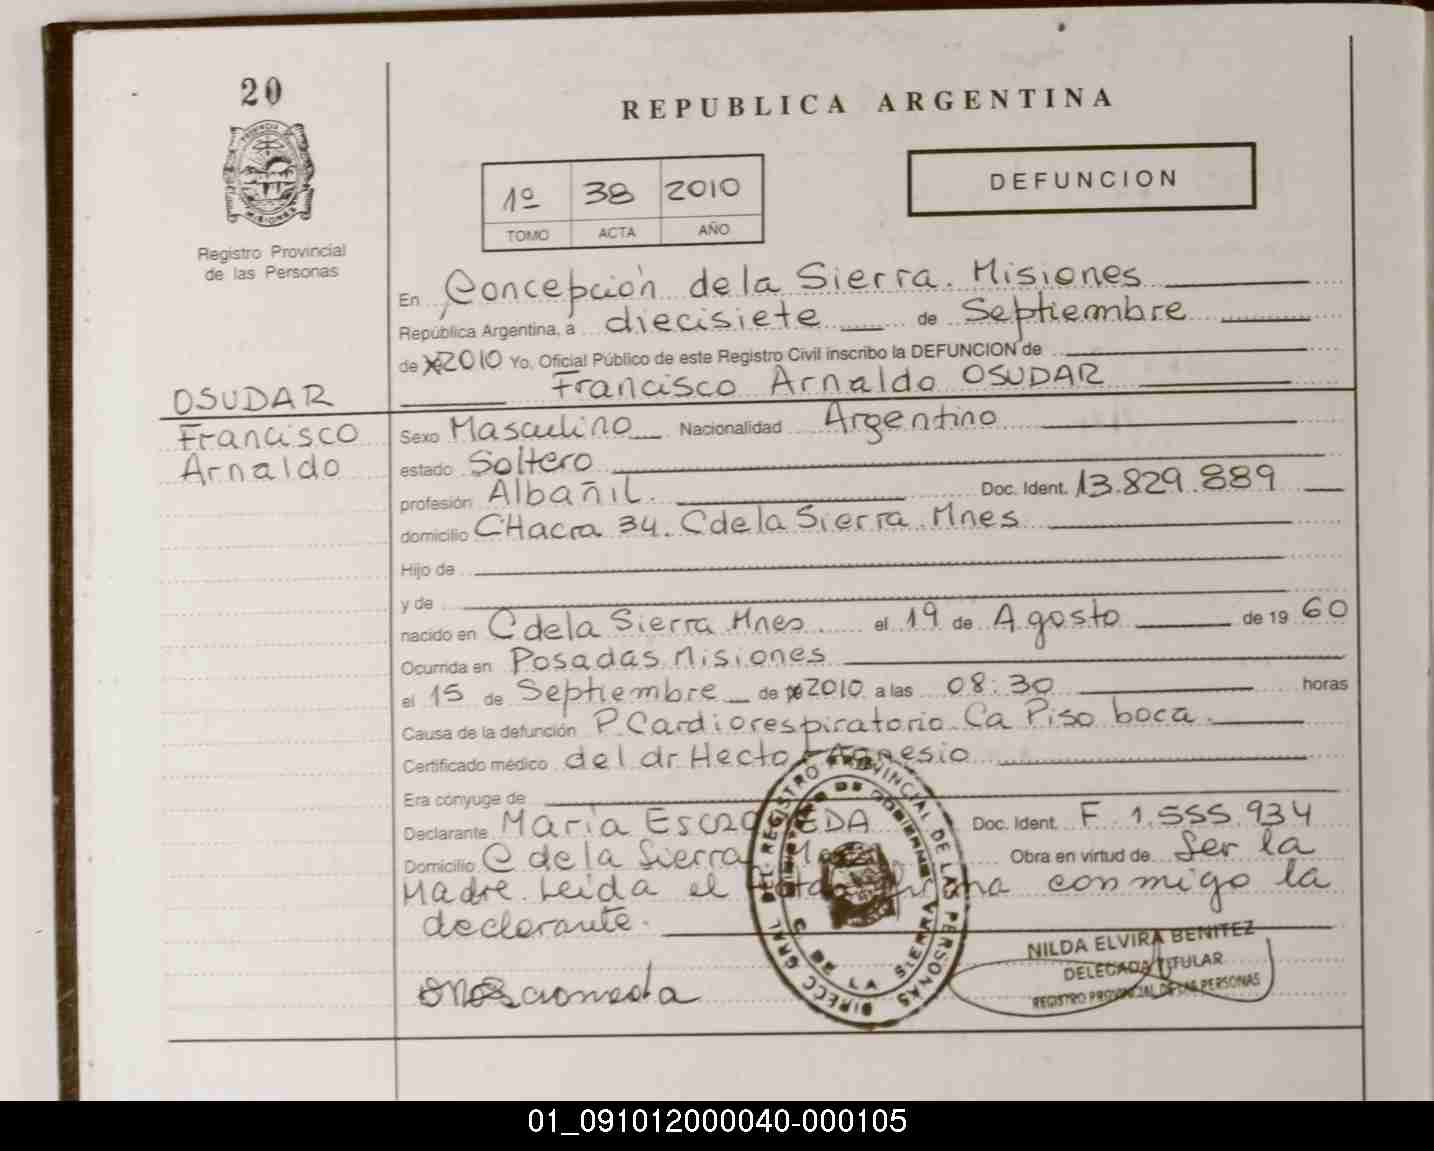 20
REPUBLICA ARGENTINA
PROVINCIA DE MISIONES
Registro Provincial
de las Personas
1º 38 2010
TOMO ACTA AÑO
DEFUNCION
En Concepción de la Sierra. Misiones
República Argentina, a diecisiete de Septiembre
de 2010 Yo, Oficial Público de este Registro Civil inscribo la DEFUNCION de
Francisco Arnaldo OSUDAR
OSUDAR
Francisco
Arnaldo
Sexo Masculino Nacionalidad Argentino
estado Soltero
profesión Albañil. Doc. Ident. 13.829.889
domicilio CHacra 34. C de la Sierra. Mnes
Hijo de
y de
nacido en C de la Sierra Mnes. el 19 de Agosto de 19 60
Ocurrida en Posadas. Misiones
el 15 de Septiembre de 2010 a las 08:30 horas
Causa de la defunción P. Cardiorespiratorio. Ca Piso boca.
Certificado médico del dr Hector
Era cónyuge de
Declarante María Doc. Ident. F 1.555.934
Domicilio C de la Sierra Obra en virtud de Ser la
Madre. Leida el firma conmigo la
declarante.
DIRECC GRAL DEL REGISTRO PROVINCIAL DE LAS PERSONAS
C DE LA SIERRA
NILDA ELVIRA BENITEZ
DELEGADA TITULAR
REGISTRO PROVINCIAL DE LAS PERSONAS
01_091012000040-000105